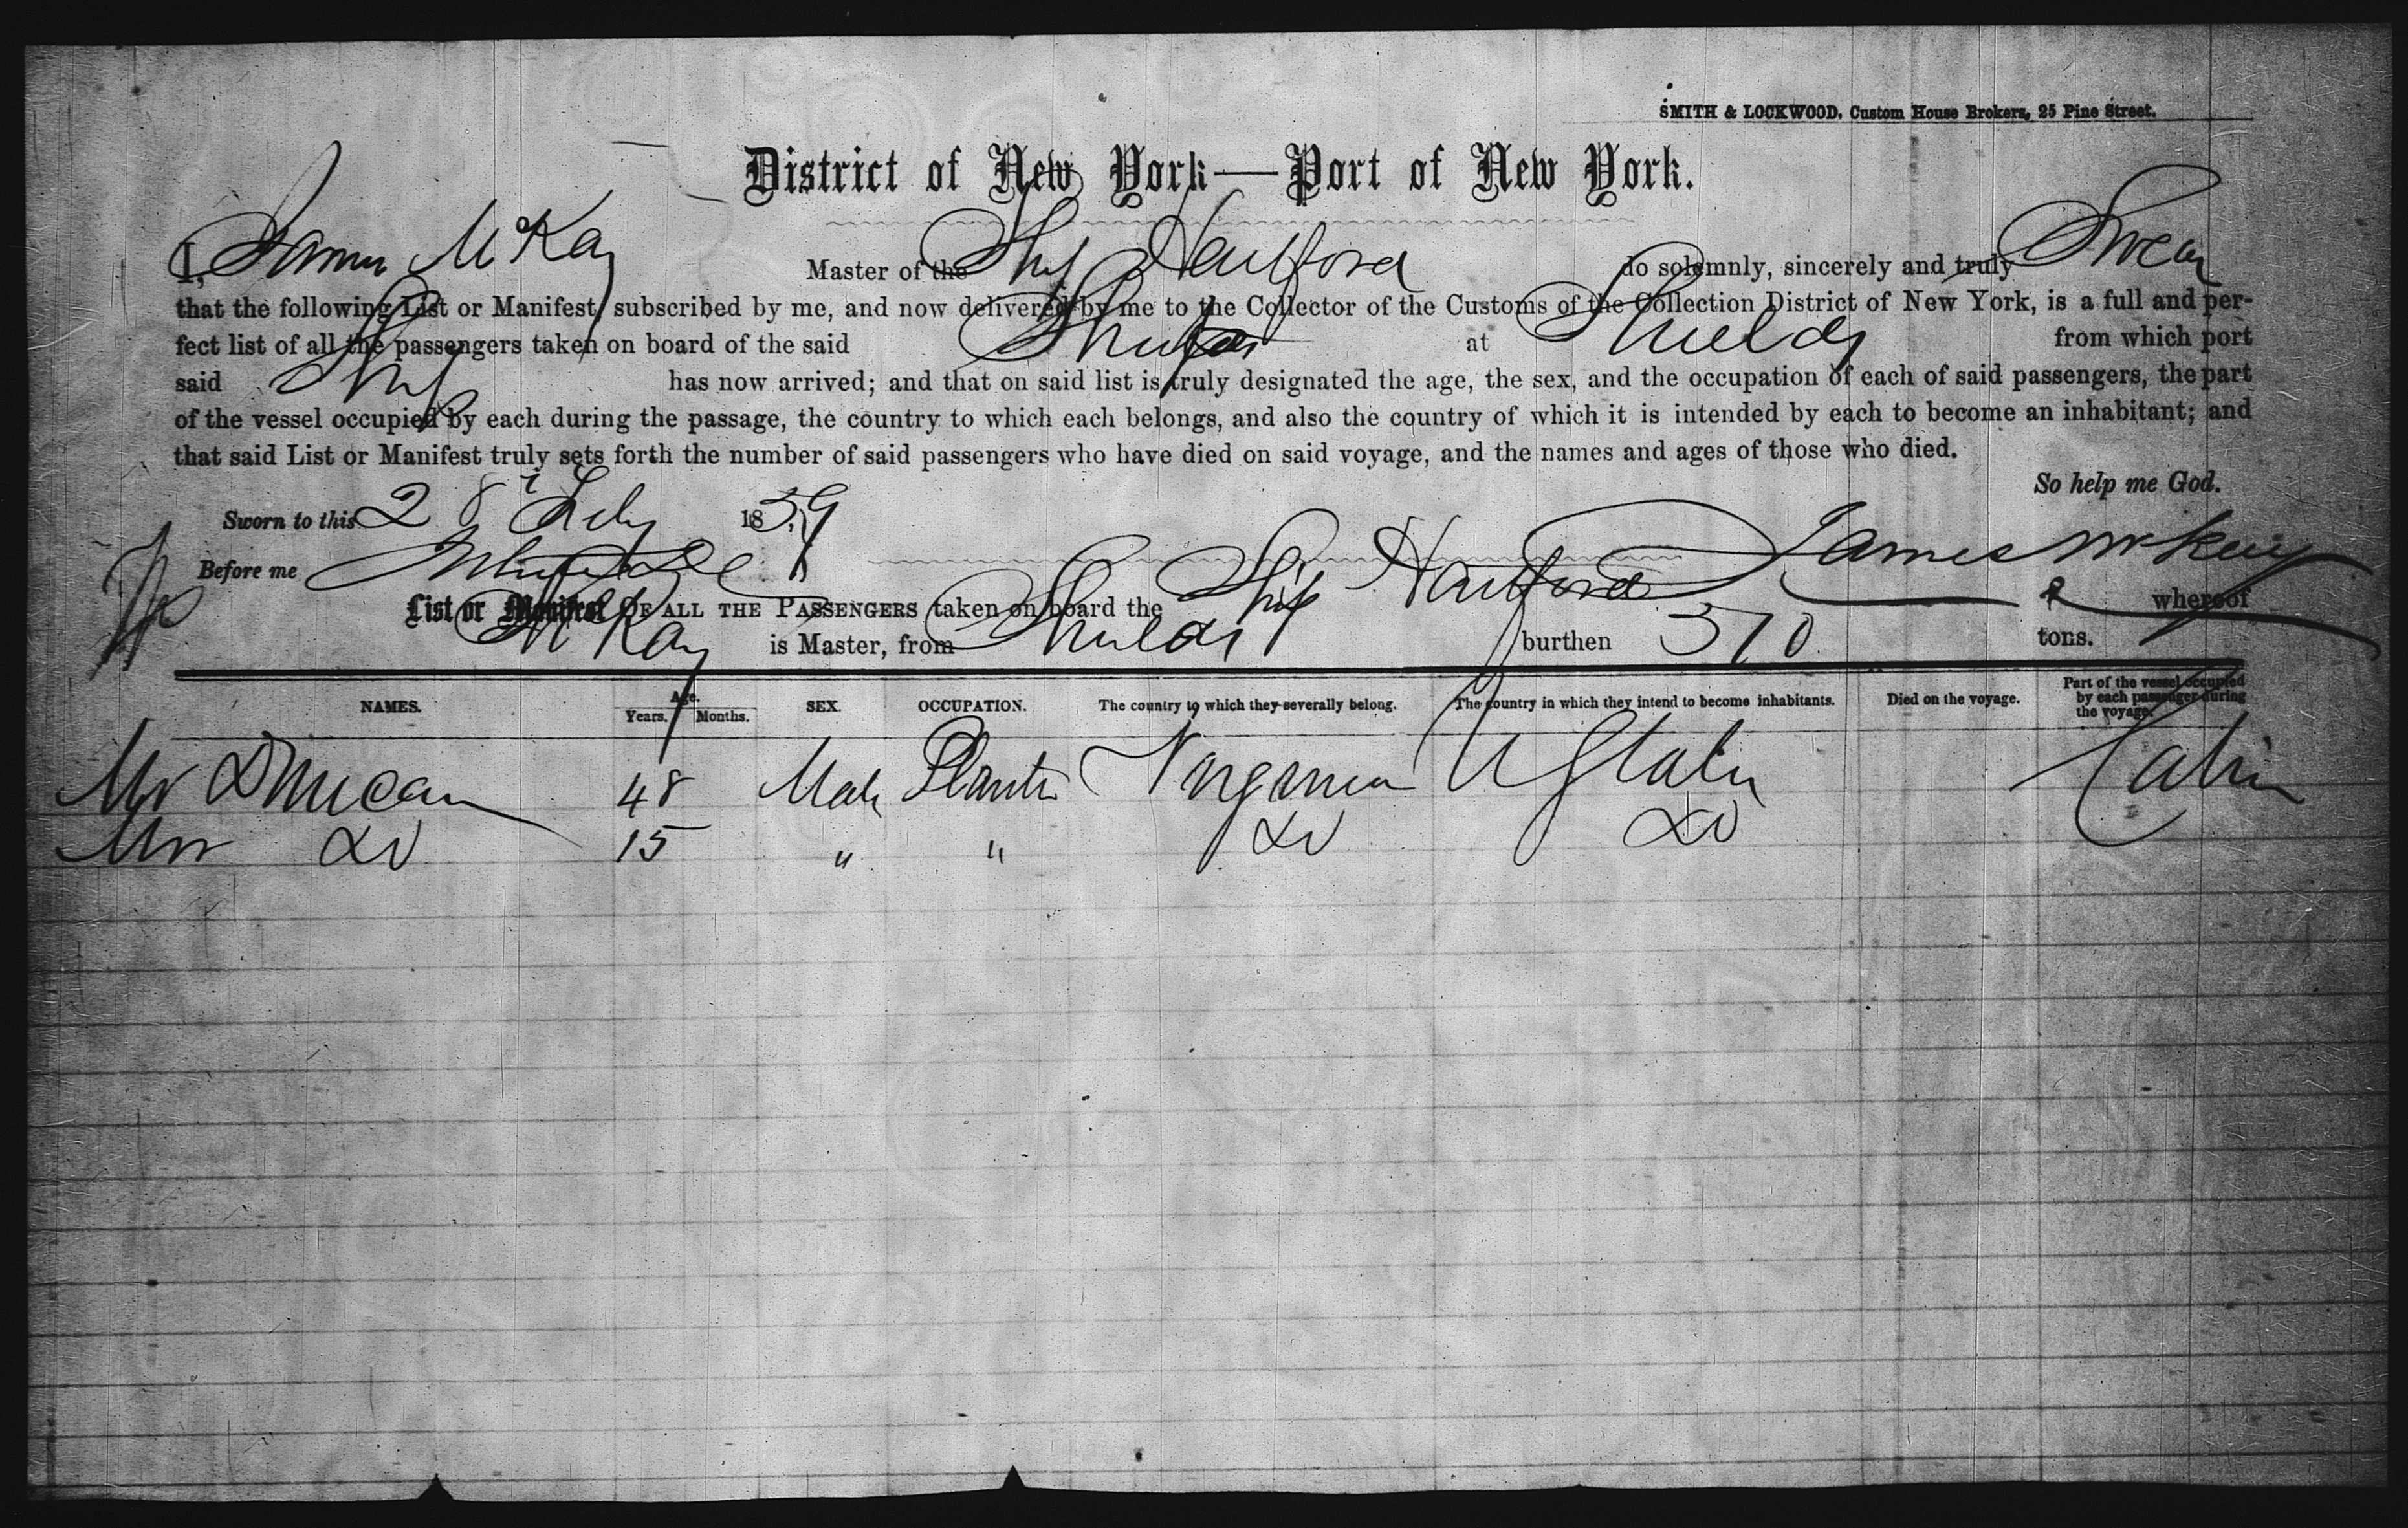 SMITH & LOCKWOOD, Custom House Brokers, 25 Pine Street.
District of New York—Port of New York.
I, James McKay Master of the Ship Hartford do solemnly, sincerely and truly Swear
that the following List or Manifest, subscribed by me, and now delivered by me to the Collector of the Customs of the Collection District of New York, is a full and per-
fect list of all the passengers taken on board of the said Ship at Shields from which port
said Ship has now arrived; and that on said list is truly designated the age, the sex, and the occupation of each of said passengers, the part
of the vessel occupied by each during the passage, the country to which each belongs, and also the country of which it is intended by each to become an inhabitant; and
that said List or Manifest truly sets forth the number of said passengers who have died on said voyage, and the names and ages of those who died.
So help me God.
Sworn to this 28 Feby 1859
James McKay
Before me
List or Manifest OF ALL THE PASSENGERS taken on board the Ship Hartford whereof
McKay is Master, from Shields burthen 570 tons.
NAMES. Age. Years. Months. SEX. OCCUPATION. The country to which they severally belong. The country in which they intend to become inhabitants. Died on the voyage. Part of the vessel occupied by each passenger during the voyage.
Mr Duncan 48 Male Planter Virginia U States Cabin
Do 15 " " Do Do